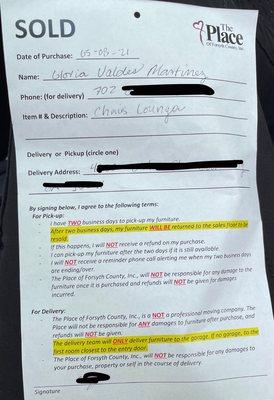 SOLD
The
Place
Of Forsyth County, Inc.
Date of Purchase: 05-08-21
Name: Gloria Valdes Martinez
Phone: (for delivery) 702
Item # & Description: Chaus Lounga
Delivery or Pickup (circle one)
Delivery Address:
By signing below, I agree to the following terms:
For Pick-up:
- I have TWO business days to pick-up my furniture.
- After two business days, my furniture WILL BE returned to the sales floor to be
resold.
- If this happens, I will NOT receive a refund on my purchase.
- I can pick-up my furniture after the two days if it is still available.
- I will NOT receive a reminder phone call alerting me when my two business days
are ending/over.
- The Place of Forsyth County, Inc., will NOT be responsible for any damage to the
furniture once it is purchased and refunds will NOT be given for damages
incurred.
For Delivery:
- The Place of Forsyth County, Inc., is a NOT a professional moving company. The
Place will not be responsible for ANY damages to furniture after purchase, and
refunds will NOT be given.
- The delivery team will ONLY deliver furniture to the garage. If no garage, to the
first room closest to the entry door.
- The Place of Forsyth County, Inc., will NOT be responsible for any damages to
your purchase, property or self in the course of delivery.
Signature